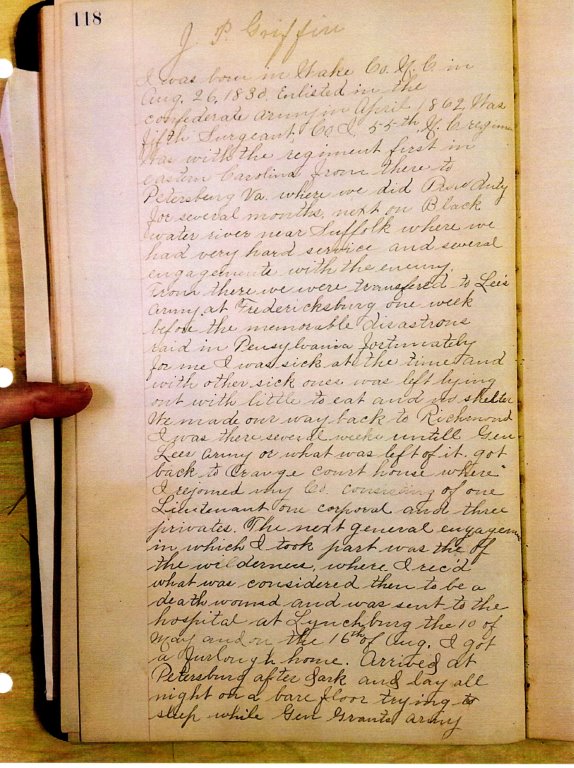 118
J. P. Griffin
I was born in Wake Co. N. C. in
Aug. 26, 1830. Enlisted in the
confederate army in April 1862. Was
fifth Surgeant, Co I, 55th N. C. regiment
Was with the regiment first in
eastern Carolina from there to
Petersburg Va. where we did Duty
for several months, next on Black
water river near Suffolk where we
had very hard service and several
engagements with the enemy.
From there we were transfered to Lee's
army at Fredericksburg one week
before the memorable disastrous
raid in Pensylvania fortunately
for me I was sick at the time and
with other sick ones was left lying
out with little to eat and no shelter
We made our way back to Richmond
I was there several weeks untill Gen
Lees army or what was left of it. got
back to Orange court house where
I rejoined my Co. consisting of one
Lieutenant one corporal and three
privates. The next general engagem
in which I took part was the of
the wilderness, where I rec'd
what was considered then to be a
death wound and was sent to the
hospital at Lynchburg the 10 of
May and on the 16th of Aug. I got
a furlough home. Arrived at
Petersburg after dark and lay all
night on a bare floor trying to
sleep while Gen Grants army